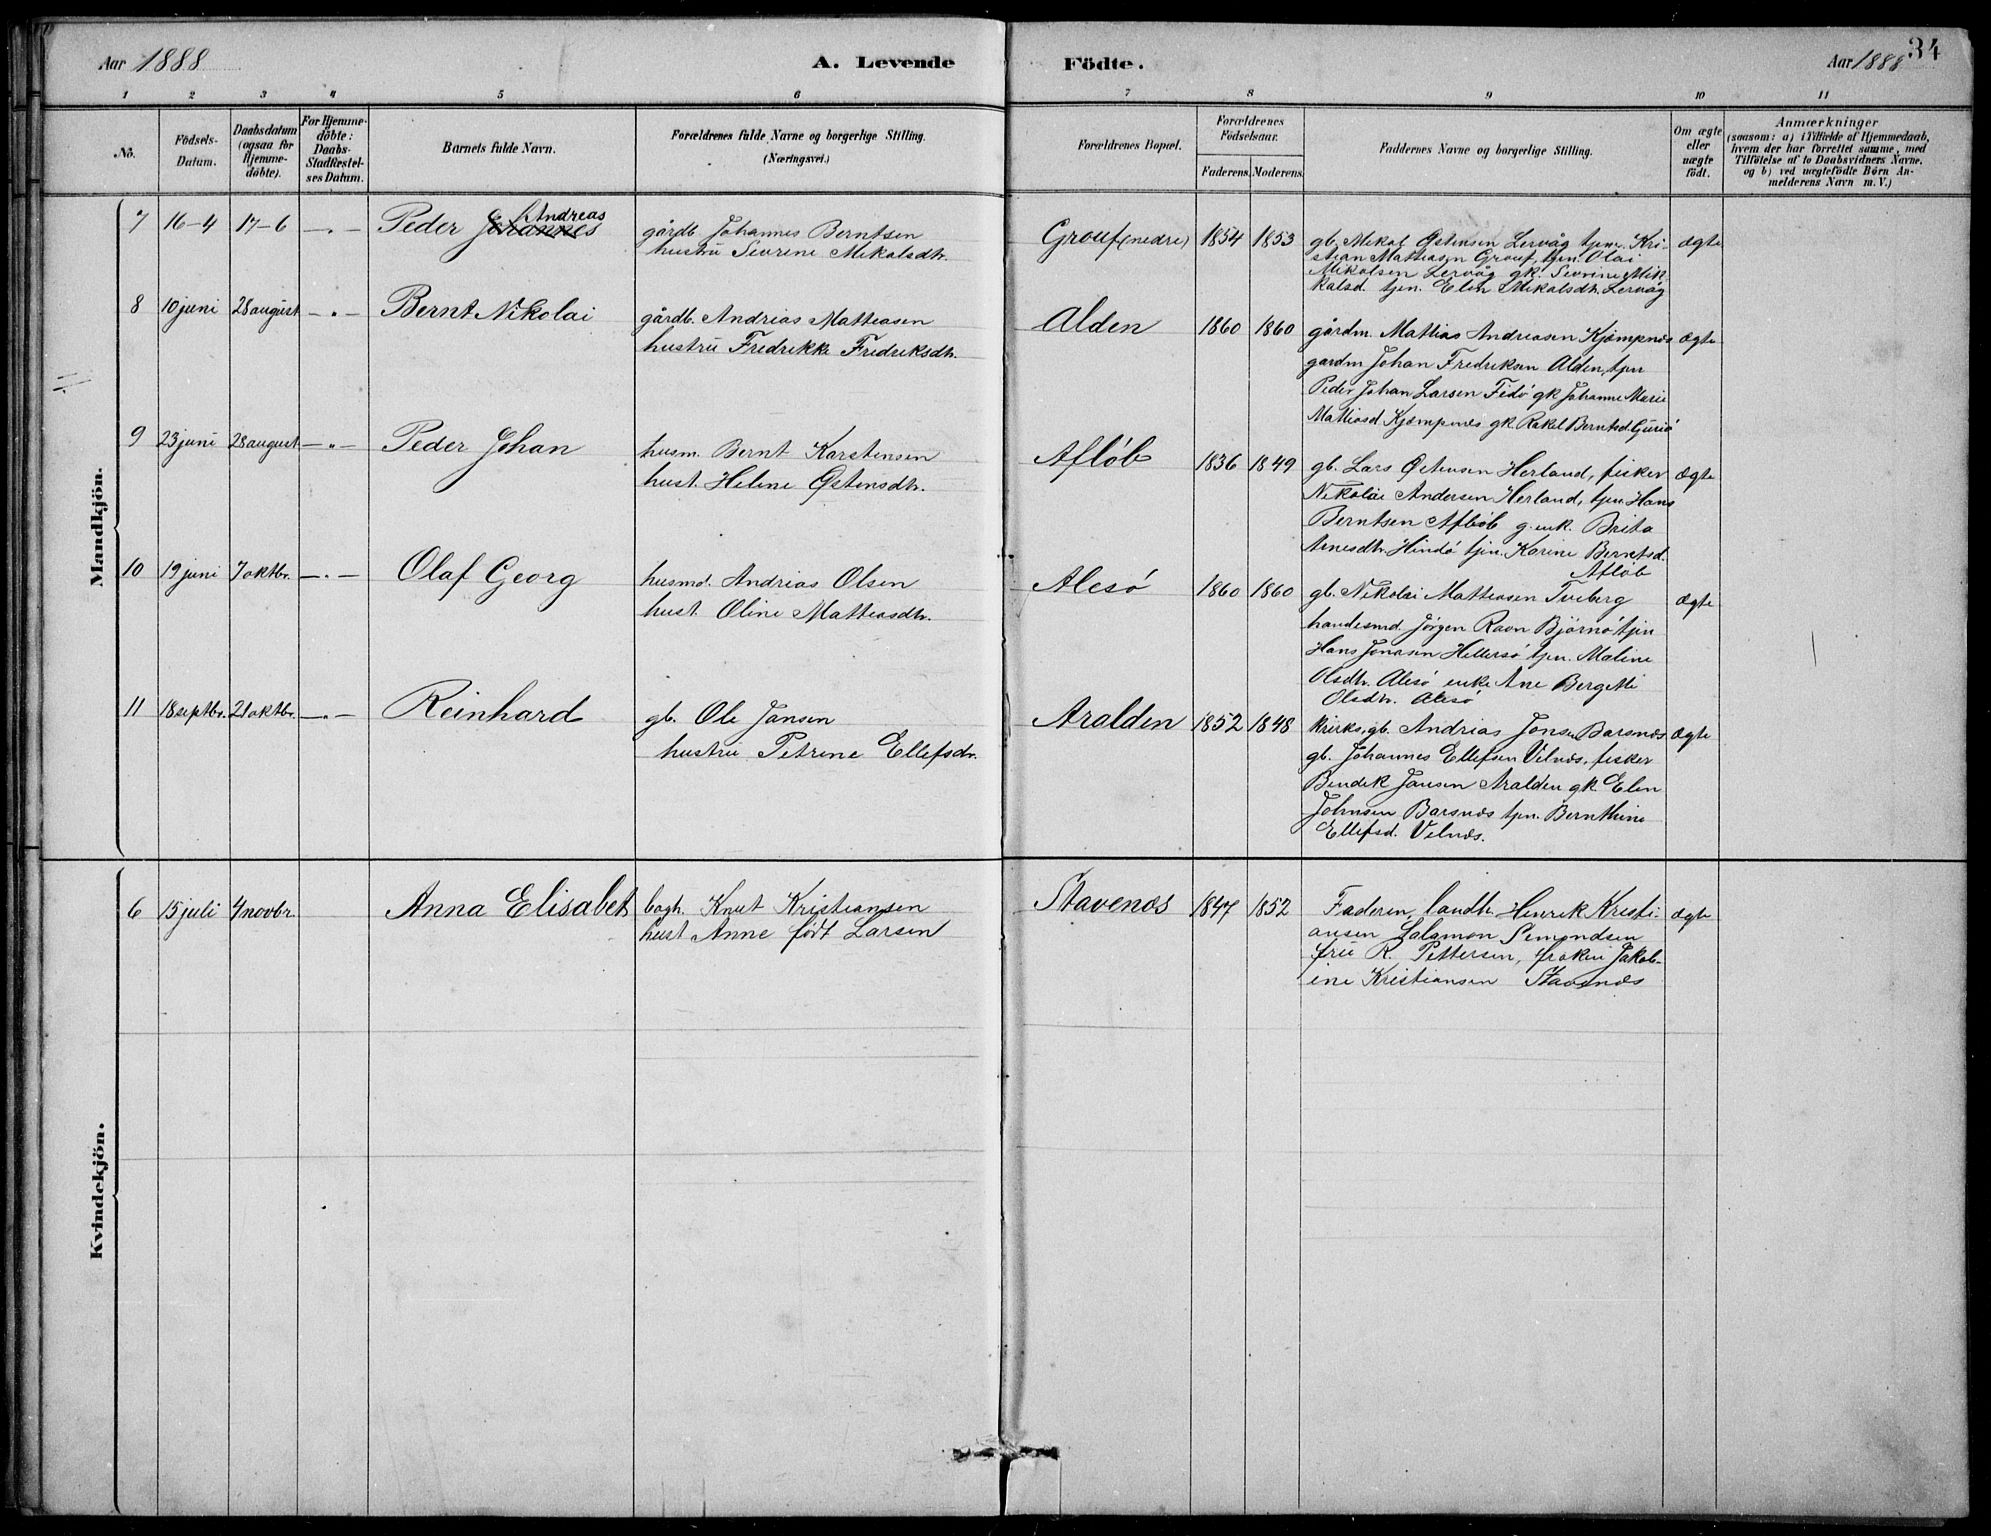 Aar 1888
A. Levende
Födte.
Aar 1888
34
1 2 3 4 5 6 7 8 9 10 11
No.
Födsels-
Datum.
Daabsdatum
(ogsaa for
Hjemme-
döbte).
For Hjemme-
döbte:
Daabs-
Stadfæstel-
ses Datum.
Barnets fulde Navn.
Forældrenes fulde Navne og borgerlige Stilling.
(Næringsvei.)
Forældrenes Bopæl.
Forældrenes
Födselsaar.
Faderens. Moderens.
Faddernes Navne og borgerlige Stilling.
Om ægte
eller
uægte
födt.
Anmærkninger
(saasom: a) i Tilfælde af Hjemmedaab,
hvem der har forrettet samme, med
Tilföielse af to Daabsvidners Navne.
og b) ved uægtefödte Börn An-
melderens Navn m. V.)
Mandkjön.
7 16-4 17-6 -"-
Andreas
Peder Johannes
gårdb. Johannes Berntsen
hustru Sevrine Mikalsdtr.
Grouf (nedre) 1854 1853
gb. Mikal Østensen Lervåg tjen. Kri-
stian Mattiasen Grouf, tjen. Olai
Mikalsen Lervåg gk. Sevrine Mik-
kalsd. tjen. Elen Mikalsdtr. Lervåg
ægte
8 10 juni 28 august -"-
Bernt Nikolai
gårdb. Andrias Mattiasen
hustru Fredrikke Fredriksdtr.
Alden 1860 1860
gårdm. Mattias Andreasen Kjæmpnæs
gårdm Johan Fredriksen Alden, tjen
Peder Johan Larsen Fedö gk Johanne Marie
Mattiasd Kjæmpenæs gk. Rakel Berntsd. Guriö
ægte
9 23 juni 28 august -"-
Peder Johan
husm. Bernt Karstensen
hust. Helene Østensdtr.
Aflöb 1836 1849
gb. Lars Østensen Herland, fisker
Nikolai Andersen Herland, tjen. Hans
Berntsen Aflöb g. enk. Brita
Arnesdtr. Hindö tjen. Karine Berntsd.
Aflöb
ægte
10 19 juni 7 oktbr. -"-
Olaf Georg
husmd. Andrias Olsen
hust. Oline Mattiasdtr.
Alesö 1860 1860
gb. Nikolai Mattiasen Tveberg
handesmd. Jörgen Ravn Björnö tjen
Hans Jonasen Hellersö tjen. Maline
Olsdtr. Alesö enke Ane Bergette
Olsdtr. Alesö
ægte
11 18 septbr. 21 oktbr. -"-
Reinhard
gb. Ole Jansen
hustru Petrine Ellefsdr.
Aralden 1852 1848
kirks. gb. Andrias Jonsen Barsnæs
gb. Johannes Ellefsen Vilnæs, fisker
Bendik Jansen Aralden gk. Elen
Johnsen Barsnæs tjen. Bernthine
Ellefsd. Vilnæs.
ægte
Kvindekjön.
6 15 juli 4 novbr.
Anna Elisabet
bogh. Knut Kristiansen
hust Anne född Larsen
Stavenæs 1847 1852
Faderen, landh. Henrik Kristi-
ansen Salamon Semondsen
frü R. Pettersen, frøken Jakob-
ine Kristiansen Stavenæs
ægte